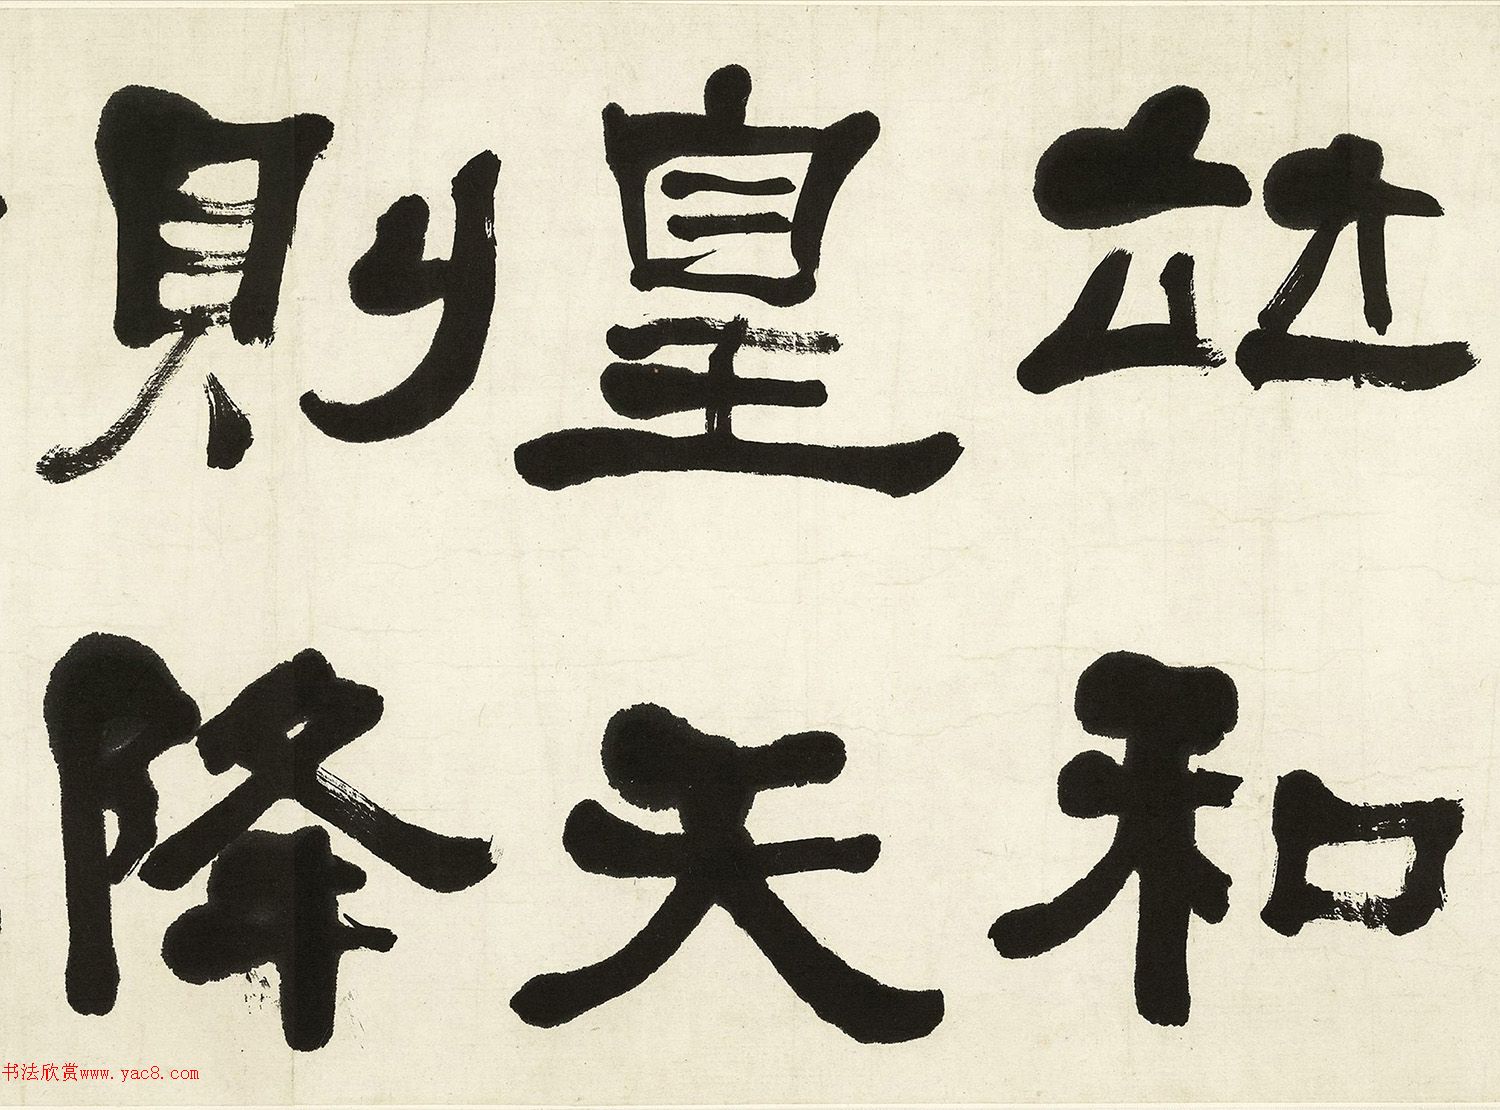 竝和
皇天
則降
书法欣赏www.yac8.com